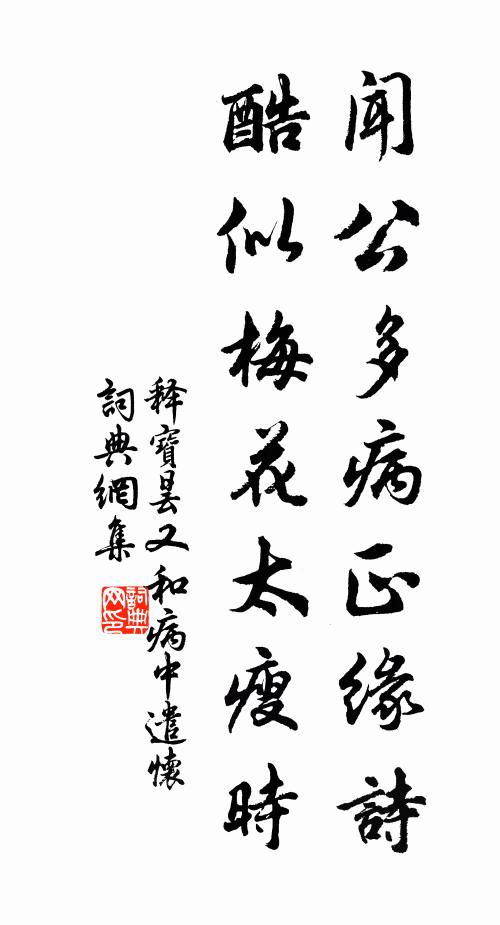 聞公多病正緣詩
酷似梅花太瘦時
释寶曇又和病中遣懷
詞典網集
詞典
网印